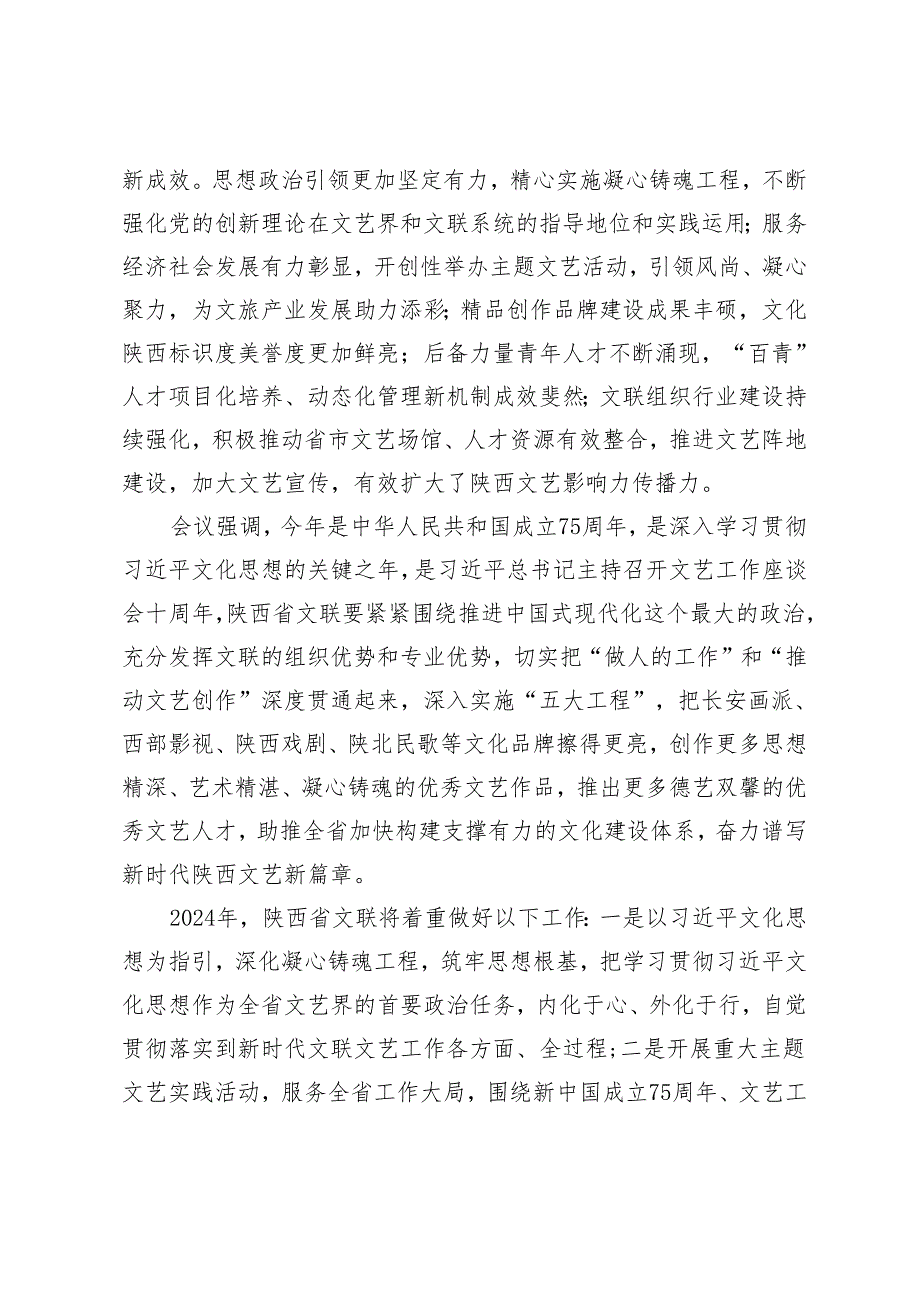 新成效。思想政治引领更加坚定有力，精心实施凝心铸魂工程，不断
强化党的创新理论在文艺界和文联系统的指导地位和实践运用；服务
经济社会发展有力彰显，开创性举办主题文艺活动，引领风尚、凝心
聚力，为文旅产业发展助力添彩；精品创作品牌建设成果丰硕，文化
陕西标识度美誉度更加鲜亮；后备力量青年人才不断涌现，“百青”
人才项目化培养、动态化管理新机制成效斐然；文联组织行业建设持
续强化，积极推动省市文艺场馆、人才资源有效整合，推进文艺阵地
建设，加大文艺宣传，有效扩大了陕西文艺影响力传播力。
会议强调，今年是中华人民共和国成立75周年，是深入学习贯彻
习近平文化思想的关键之年，是习近平总书记主持召开文艺工作座谈
会十周年，陕西省文联要紧紧围绕推进中国式现代化这个最大的政治，
充分发挥文联的组织优势和专业优势，切实把“做人的工作”和“推
动文艺创作”深度贯通起来，深入实施“五大工程”，把长安画派、
西部影视、陕西戏剧、陕北民歌等文化品牌擦得更亮，创作更多思想
精深、艺术精湛、凝心铸魂的优秀文艺作品，推出更多德艺双馨的优
秀文艺人才，助推全省加快构建支撑有力的文化建设体系，奋力谱写
新时代陕西文艺新篇章。
2024年，陕西省文联将着重做好以下工作：一是以习近平文化思
想为指引，深化凝心铸魂工程，筑牢思想根基，把学习贯彻习近平文
化思想作为全省文艺界的首要政治任务，内化于心、外化于行，自觉
贯彻落实到新时代文联文艺工作各方面、全过程；二是开展重大主题
文艺实践活动，服务全省工作大局，围绕新中国成立75周年、文艺工